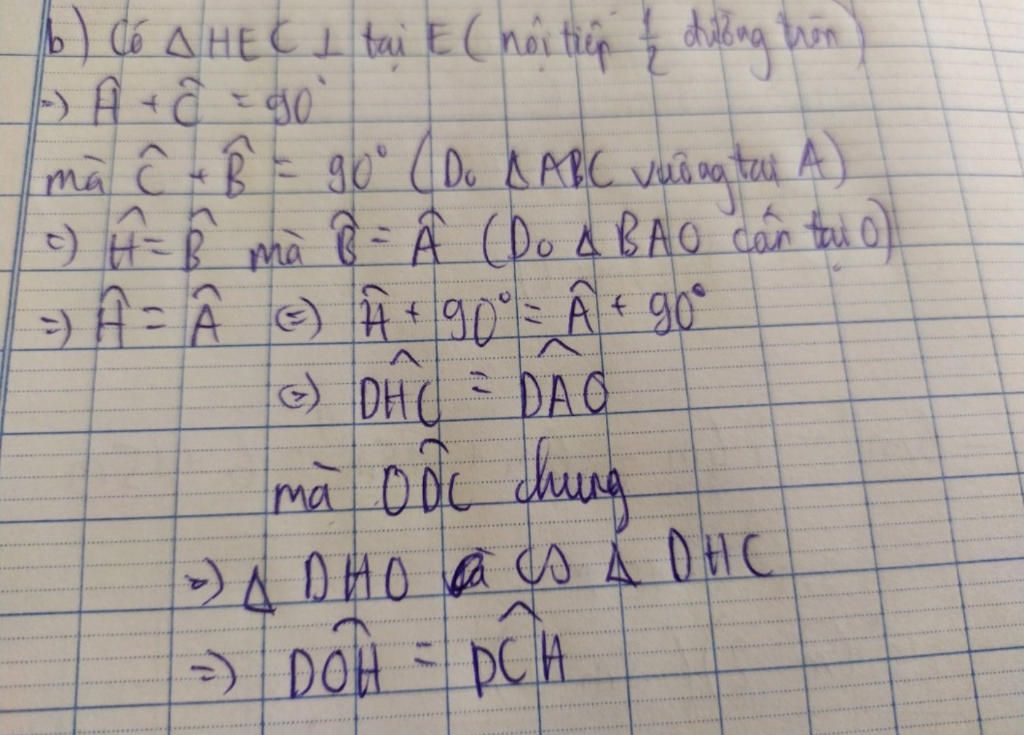 b) Có Δ HEC ⊥ tại E ( nội tiếp 1/2 đường tròn )
=> Ĥ + Ĉ = 90°
mà Ĉ + B̂ = 90° ( Do Δ ABC vuông tại A )
=> Ĥ = B̂ mà B̂ = Â ( Do Δ BAO cân tại O )
=> Ĥ = Â (=) Ĥ + 90° = Â + 90°
(=) DĤC = DÂO
mà OD̂C chung
=> Δ DHO ∽ Δ DHC
=> DÔH = DĈH